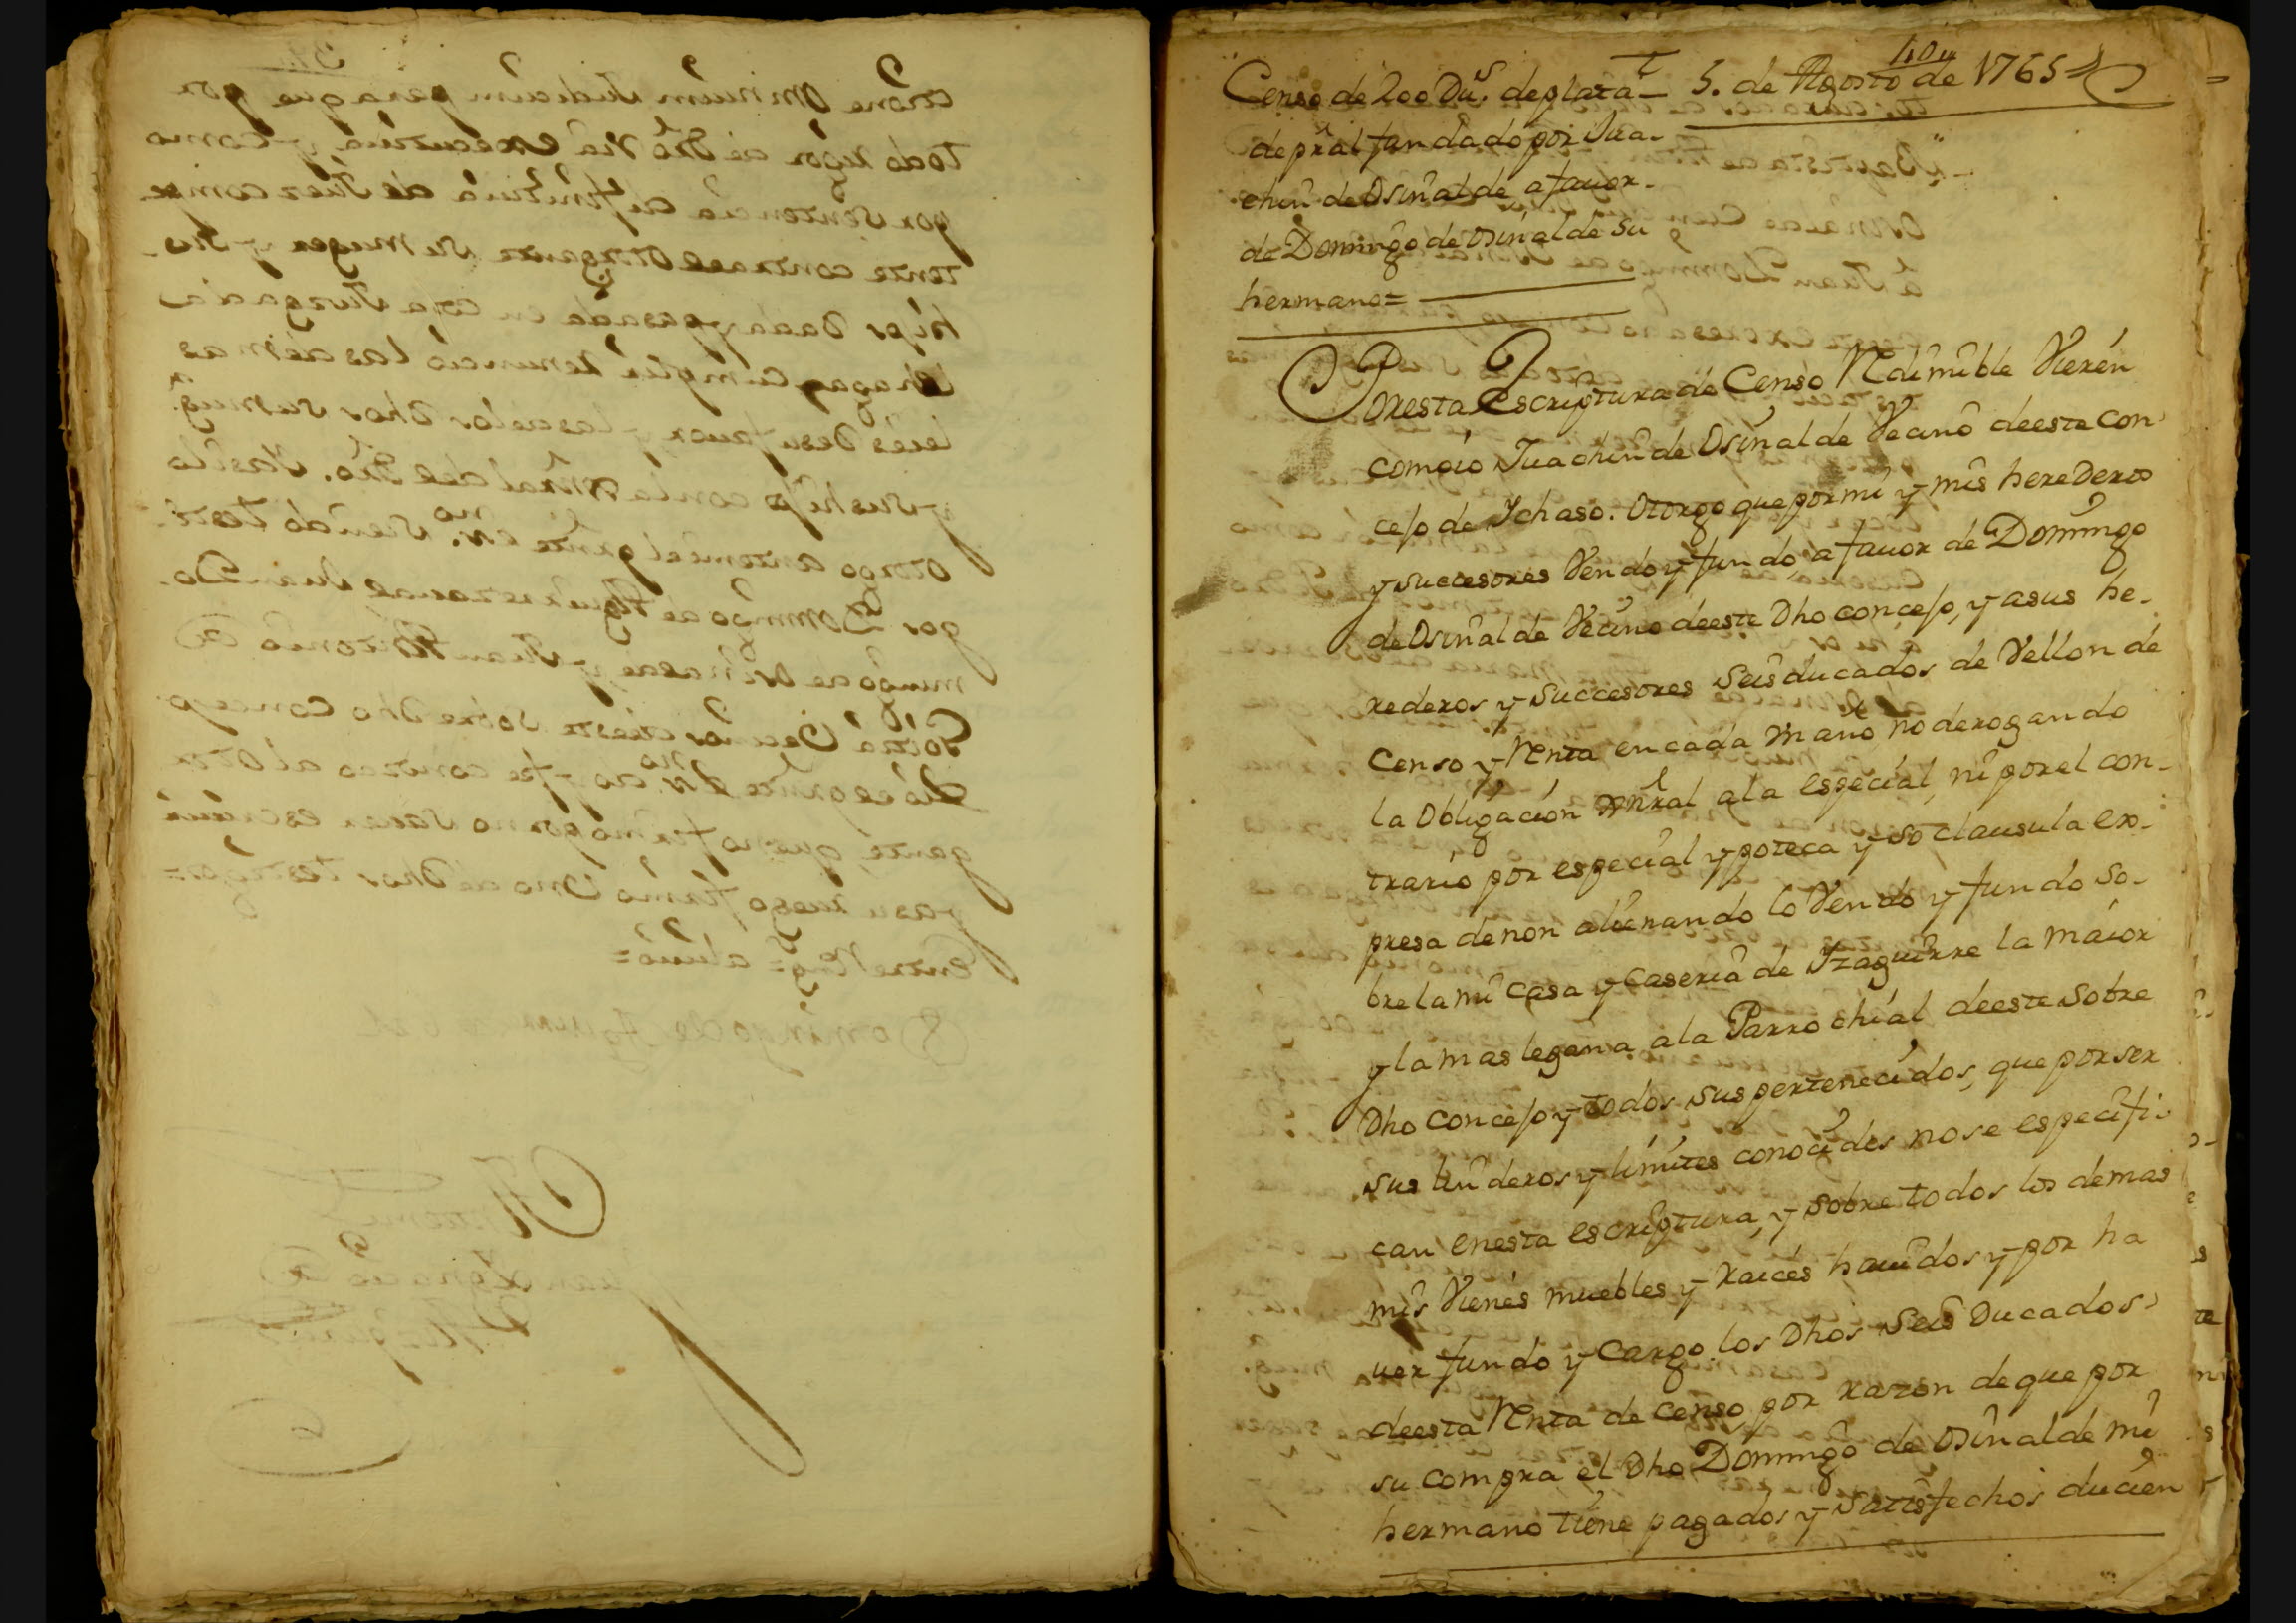 todo rigor de dro via executiva y como
por sentencia difinitiva de Juez compe
tente contra el otorgante su muger y dhos
hijos dada y pasada en cosa Juzgada
renunció las demas
leies de su favor y las de los dhos su mug.ª
y sus hijos con la gñral del dro. Y asi lo
otorgo ante mi el prnte ess.no siendo testi
gos Domingo de Juan Do
mingo de y Juan Antonio de
Goitia Vecinos de este sobre dho concejo
el prnte ess.no doy fee conozco al otor
gante, que no firmo por no saver escrivir
y a su ruego firmo Uno de dhos testigos=
entre Reng=
Domingo de
Antemi
Juan Ignacio de
110
Censo de 200 Du.s de plata
de prâl fundado por Jua-
chin de Osinalde, a fauor
de Domingo de osinalde su
hermano=
5. de Agosto de 1765=
Por esta Escriptura de Censo Redimible Vieren
como io Juachin de Osinalde Vecino de este con
cejo de Ichaso. Otorgo que por mi y mis herederos
y succesores Vendo y fundo, a fauor de Domingo
de Osinalde Vecino de este Dho concejo, y a sus he-
rederos y succesores seis ducados de Vellon de
Censo y Renta en cada Un año, no derogando
la Obligacion gñral a la especial, ni por el con-
trario por especial ypoteca y so clausula ex-
presa de non alienando lo Vendo y fundo so-
bre la mi casa y caseria de Yzaguirre la maior
y la mas legana a la Parrochial de este sobre
Dho concejo y todos sus pertenecidos, que por ser
sus linderos y limites conocidos no se especifi-
can en esta escriptura, y sobre todos los demas
mis Vienes muebles y raices hauidos y por ha
uer fundo y cargo los Dhos seis Ducados
de esta Renta de censo, por razon de que por
su compra el Dho Domingo de osinalde mi
hermano tiene pagados y satisfechos ducien